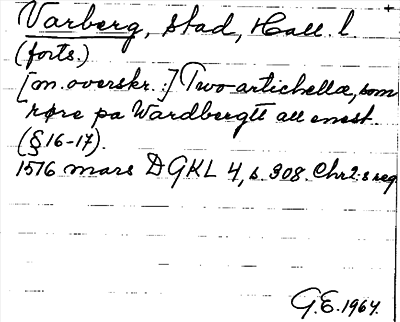 Varberg, stad, Hall. l.
(forts.)
[m. overskr.:] Two artichellæ, som
røre pa Wardbergtt all enest.
(§ 16-17).
1516 mars DGKL 4, s. 308. Chr2.s reg
G.E. 1964.